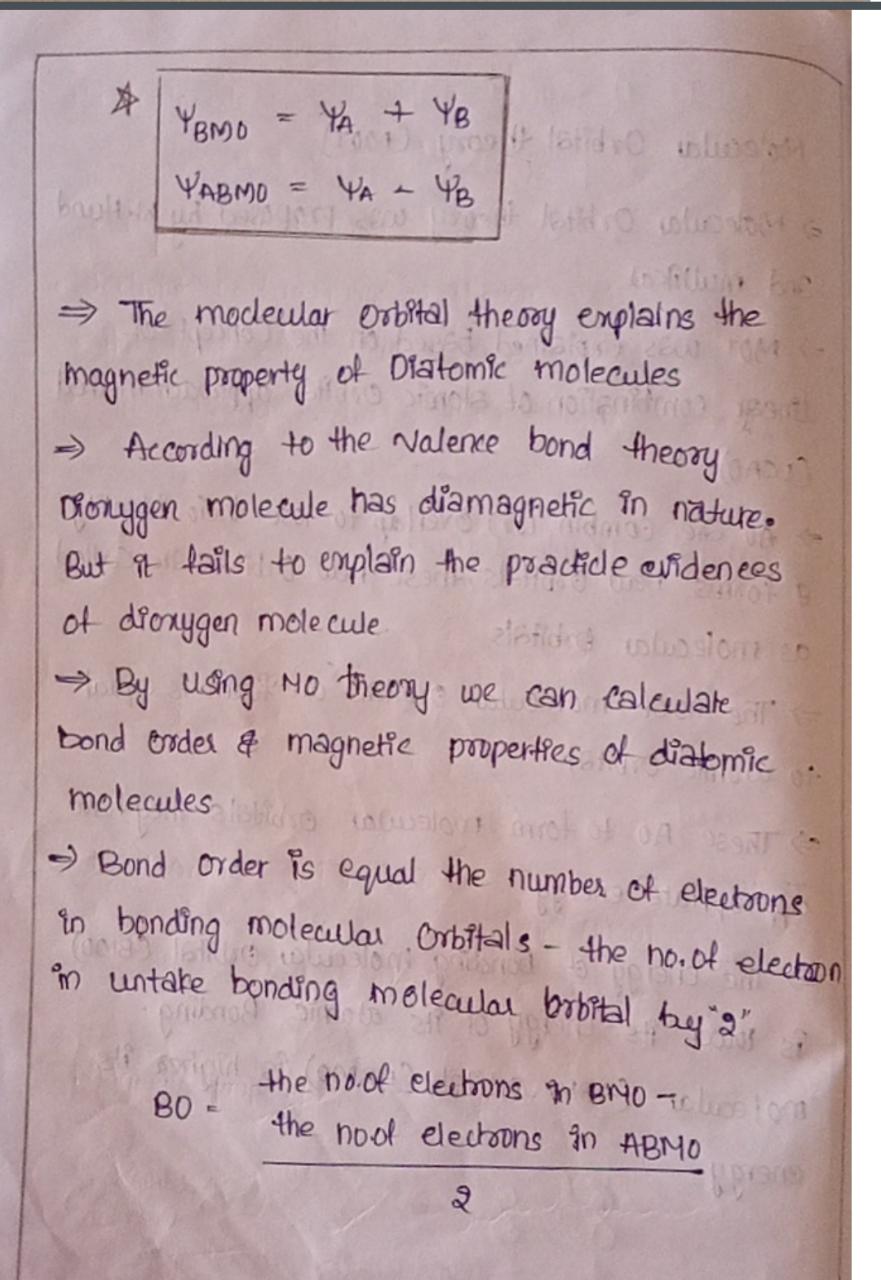 ☆ ΨBMO = ΨA + ΨB
ΨABMO = ΨA - ΨB
⇒ The moclewlar orbital theory explains the
magnetic property of Diatomic molecules
⇒ According to the Valence bond theory
Dioxygen molecule has diamagnetic in nature.
But it fails to explain the practicle evidences
of dioxygen molecule
⇒ By using MO theory we can calculate
bond order & magnetic properties of diatomic
molecules
⇒ Bond order is equal the number of electrons
in bonding molecular Orbitals - the no. of electron
in untake bonding molecular orbital by "2"
BO = the no. of electrons in BMO -
the no of electrons in ABMO
2